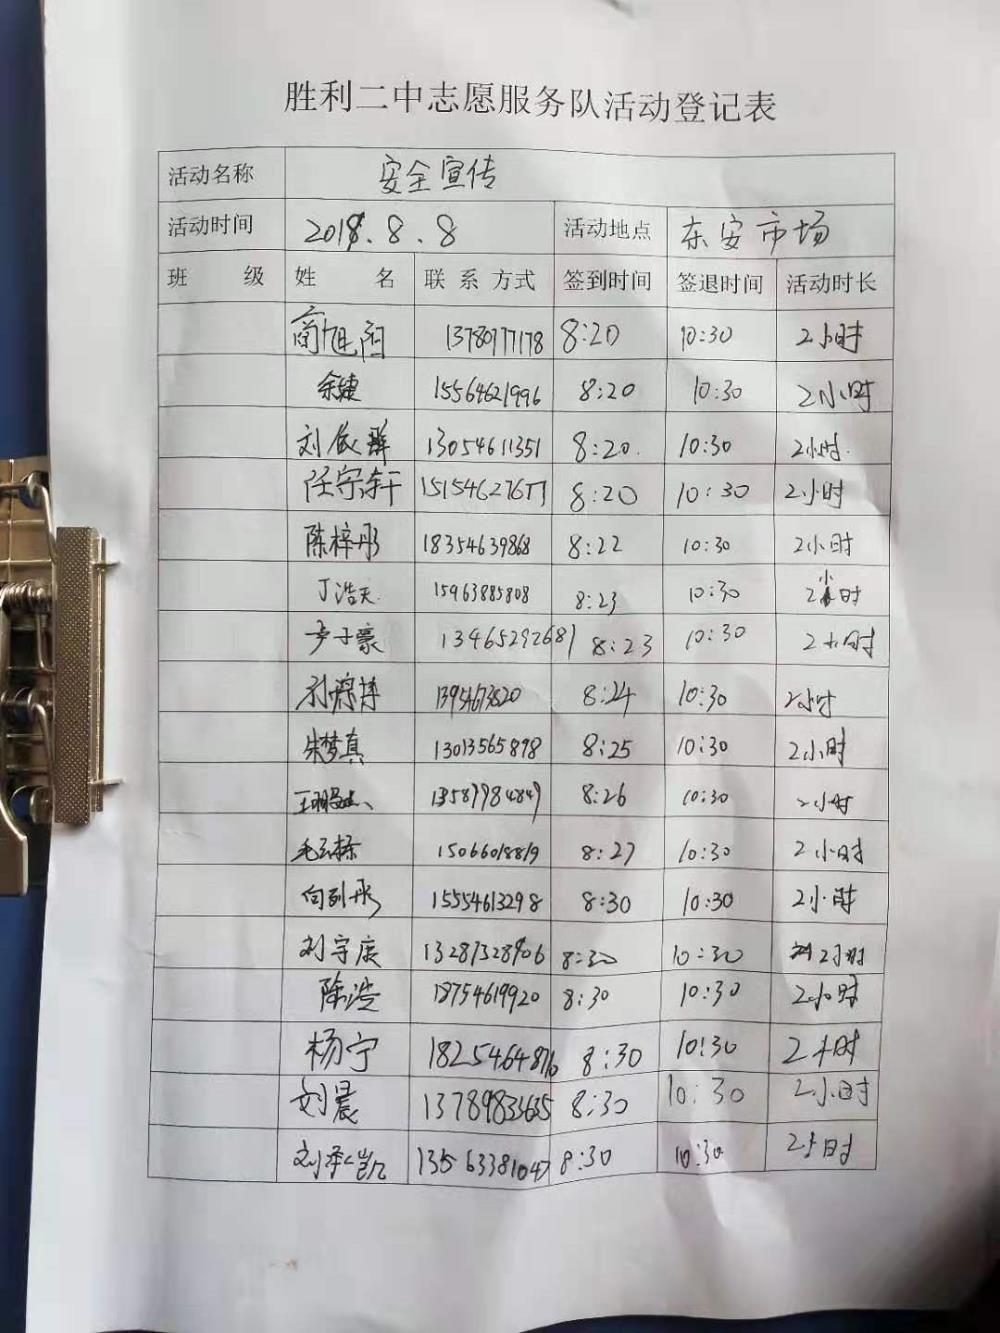 胜利二中志愿服务队活动登记表
活动名称 安全宣传
活动时间 2018.8.8 活动地点 东安市场
班 级 姓 名 联系方式 签到时间 签退时间 活动时长
13780777178 8:20 10:30 2小时
余婕 15564621996 8:20 10:30 2小时
刘依群 13054611351 8:20. 10:30 2小时.
任宇轩 15154627677 8:20 10:30 2小时
陈梓彤 18354639868 8:22 10:30 2小时
丁浩天 15963885808 8:23 10:30 2小时
尹子豪 13465292681 8:23 10:30 2小时
8:24 10:30 2小时
朱梦真 13013565898 8:25 10:30 2小时
8:26 10:30 2小时
毛云栋 15066018819 8:27 10:30 2小时
15554613298 8:30 10:30 2小时
刘宇庆 8:30 10:30 2小时
陈浩 18754619920 8:30 10:30 2小时
杨宁 18254648716 8:30 10:30 2小时
刘晨 13789833635 8:30 10:30 2小时
刘泽凯 13563381047 8:30 10:30 2小时